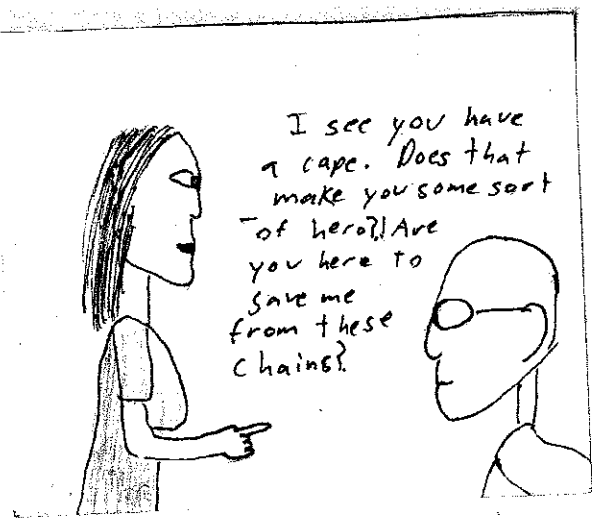 I see you have
a cape. Does that
make you some sort
of hero?! Are
you here to
save me
from these
chains?